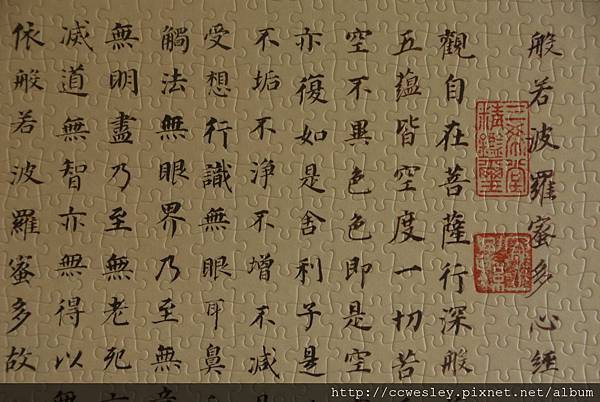 般若波羅蜜多心經
觀自在菩薩行深般
五蘊皆空度一切苦
空不異色色即是空
亦復如是舍利子是
不垢不淨不增不減
受想行識無眼耳鼻
觸法無眼界乃至無
無明盡乃至無老死
滅道無智亦無得以
依般若波羅蜜多故
三希堂精鑑璽
http://ccwesley.pixnet.net/album